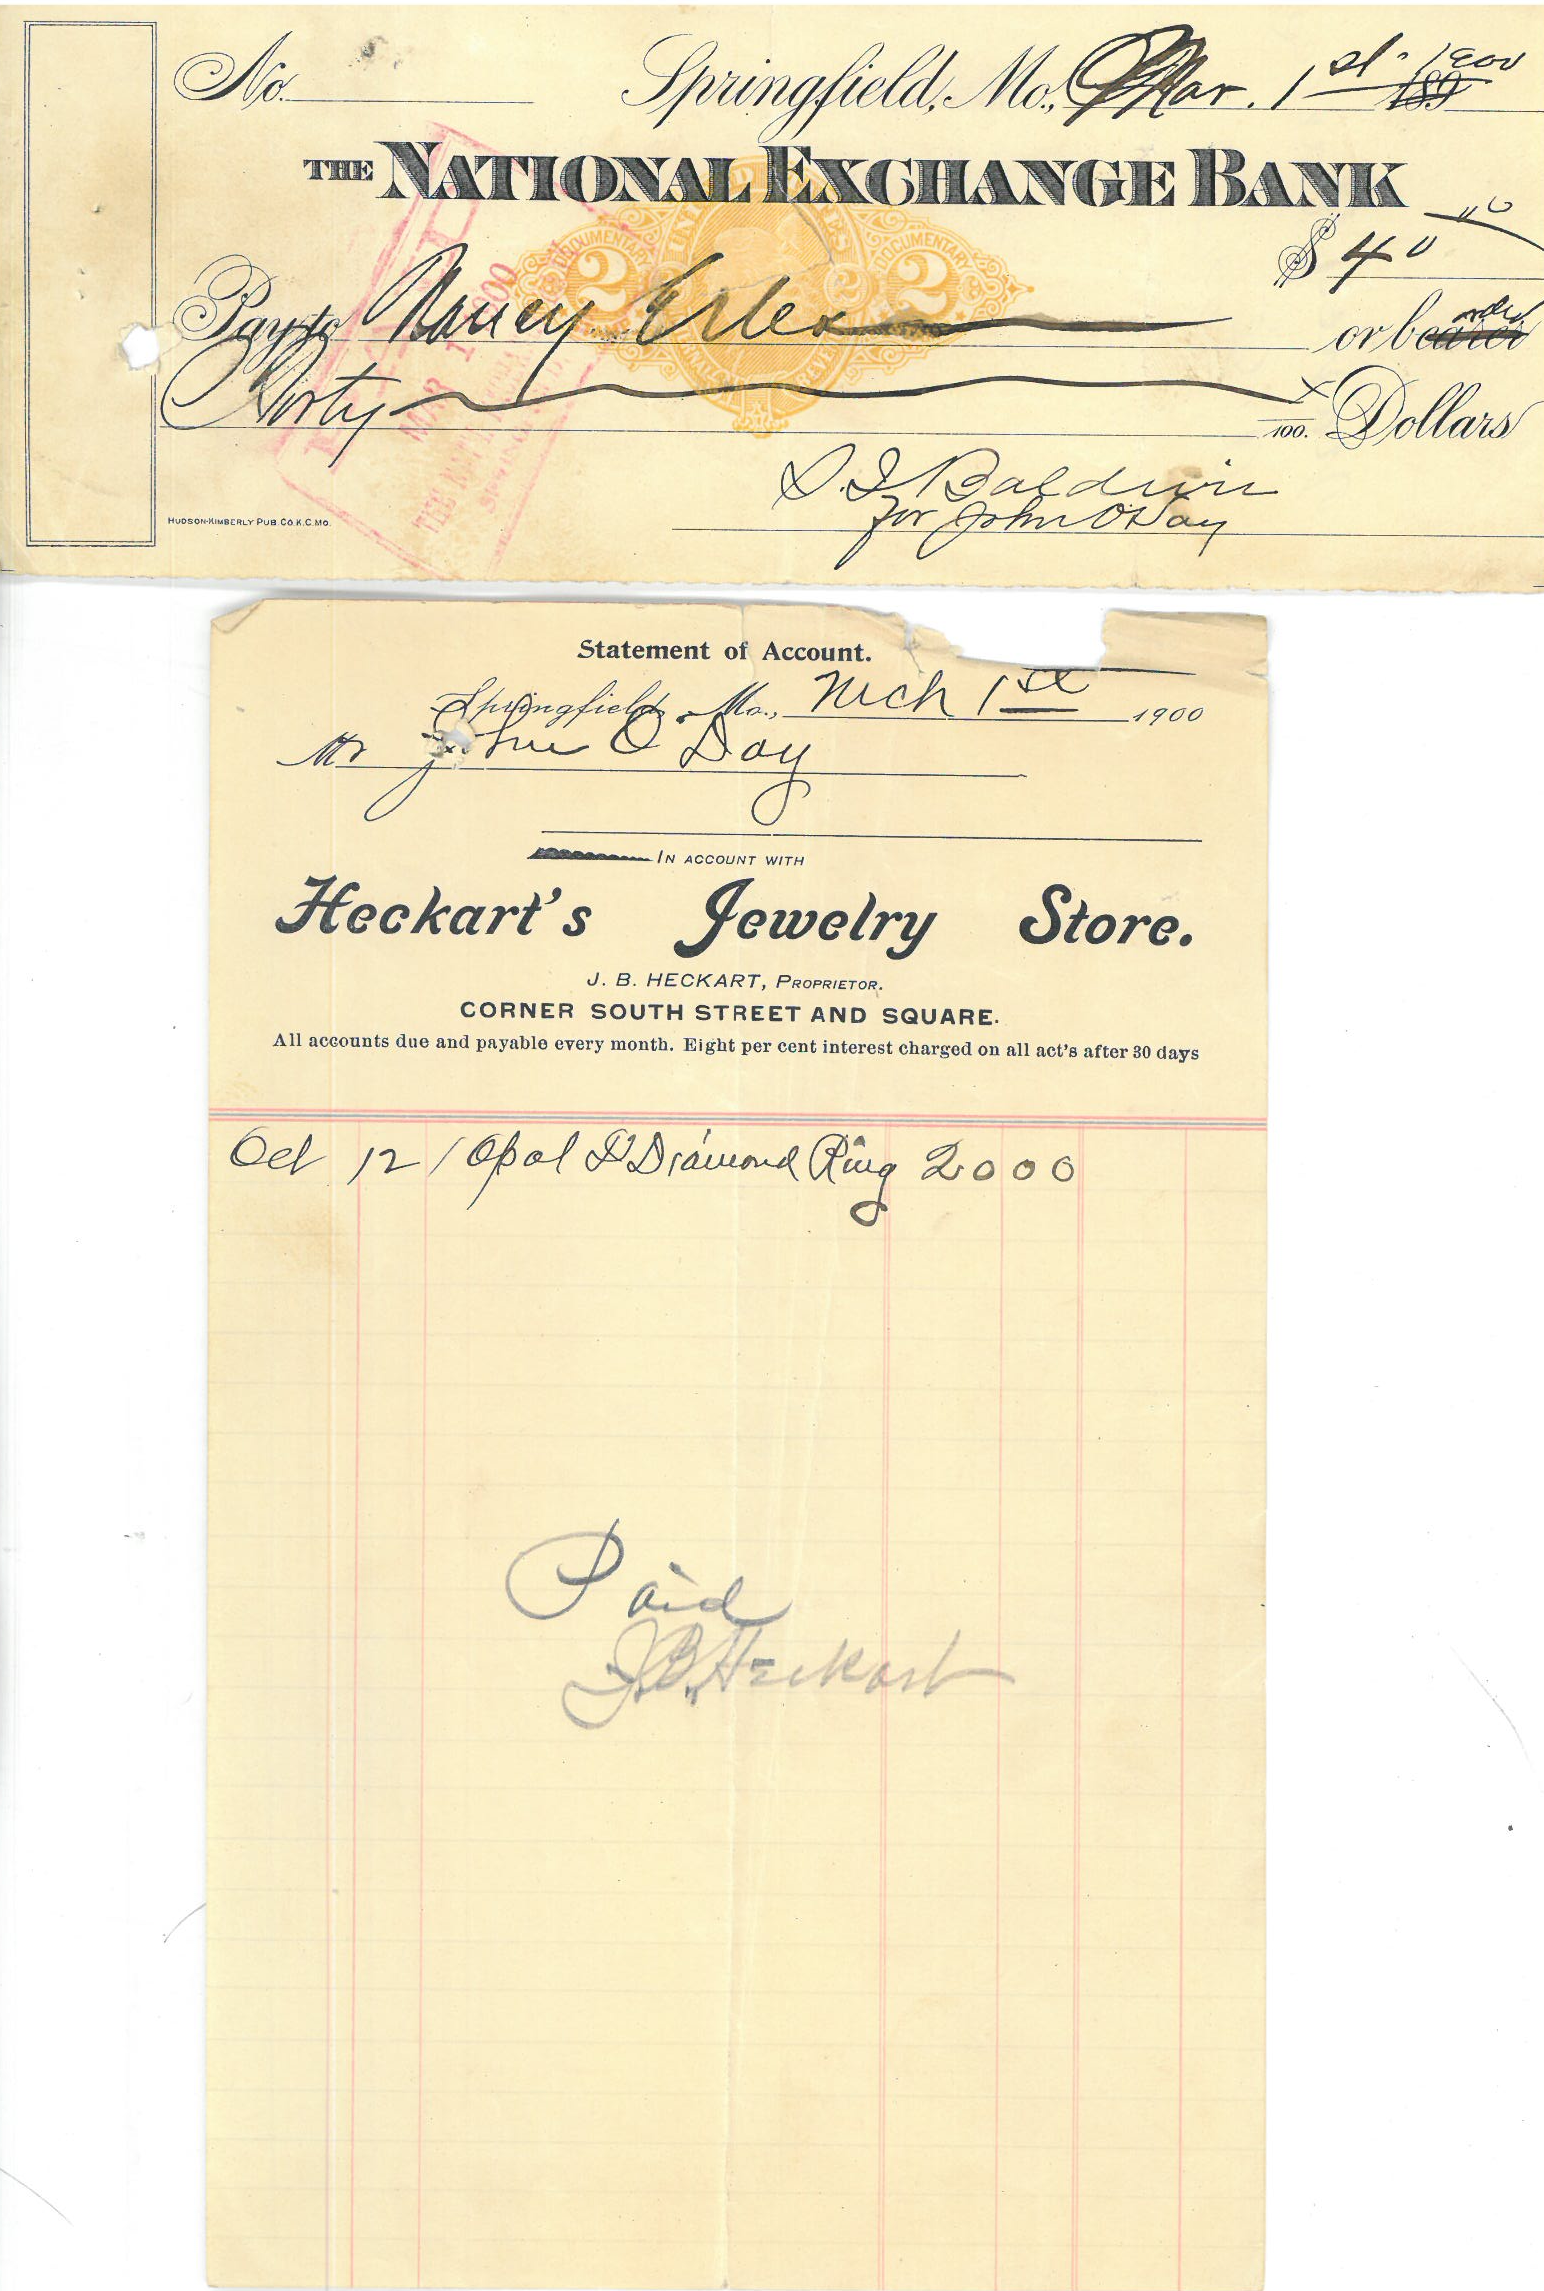 No. Springfield, Mo., Mar. 1st 1900
THE NATIONAL EXCHANGE BANK
$ 40
Pay to Nancy or order
Forty /100. Dollars
S. I. Baldwin
for John O'Day
HUDSON-KIMBERLY PUB. CO. K.C. MO.
UNITED STATES
DOCUMENTARY 2 2 DOCUMENTARY
Statement of Account.
Springfield, Mo., Mch 1st 1900
Mr John O'Day
IN ACCOUNT WITH
Heckart's Jewelry Store.
J. B. HECKART, PROPRIETOR.
CORNER SOUTH STREET AND SQUARE.
All accounts due and payable every month. Eight per cent interest charged on all act's after 30 days
Oct 12 1 Opal & Diamond Ring 20 00
Paid
J.B. Heckart